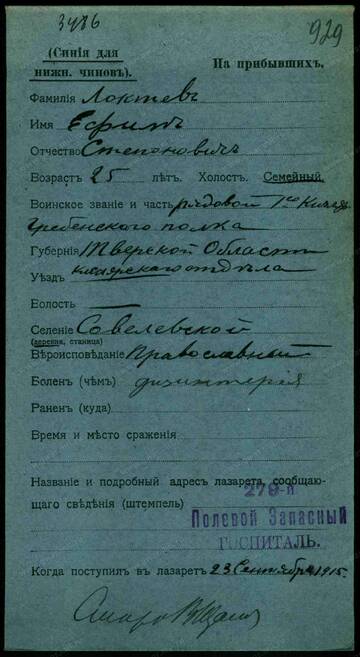 3476
929
(Синія для
нижн. чиновъ).
На прибывшихъ.
Фамилія Локтевъ
Имя Ефимъ
Отчество Степановичъ
Возрастъ 25 лѣтъ. Холост. Семейный
Воинское званіе и часть рядовой 1го
Гребенского полка
Губернія Терской Области
Уѣздъ Кизлярского отдѣла
Волость —
Селеніе
(деревня, станица)
Вѣроисповѣданіе Православный
Боленъ (чѣмъ) дизинтерія
Раненъ (куда)
Время и мѣсто сраженія
Названіе и подробный адресъ лазарета, сообщаю-
щаго свѣдѣнія (штемпель)
279-й
Полевой Запасный
ГОСПИТАЛЬ.
Когда поступилъ въ лазаретъ 23 Сентября 1915.